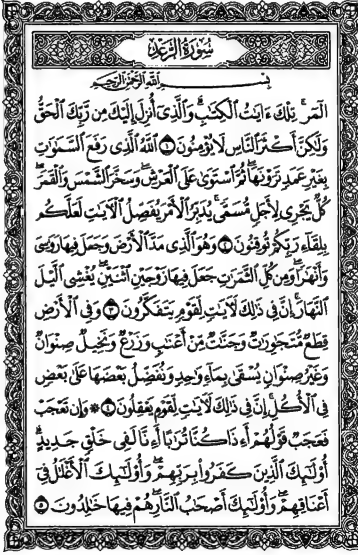 سُورَةُ الرَّعْدِ
بِسْمِ اللَّهِ الرَّحْمَٰنِ الرَّحِيمِ
الٓمٓرۚ تِلْكَ ءَايَٰتُ الْكِتَٰبِۗ وَالَّذِىٓ أُنزِلَ إِلَيْكَ مِن رَّبِّكَ الْحَقُّ
وَلَٰكِنَّ أَكْثَرَ النَّاسِ لَا يُؤْمِنُونَ ١ اللَّهُ الَّذِى رَفَعَ السَّمَٰوَٰتِ
بِغَيْرِ عَمَدٍ تَرَوْنَهَاۖ ثُمَّ اسْتَوَىٰ عَلَى الْعَرْشِۖ وَسَخَّرَ الشَّمْسَ وَالْقَمَرَۖ
كُلٌّ يَجْرِى لِأَجَلٍ مُّسَمًّىۚ يُدَبِّرُ الْأَمْرَ يُفَصِّلُ الْءَايَٰتِ لَعَلَّكُم
بِلِقَآءِ رَبِّكُمْ تُوقِنُونَ ٢ وَهُوَ الَّذِى مَدَّ الْأَرْضَ وَجَعَلَ فِيهَا رَوَٰسِىَ
وَأَنْهَٰرًاۖ وَمِن كُلِّ الثَّمَرَٰتِ جَعَلَ فِيهَا زَوْجَيْنِ اثْنَيْنِۖ يُغْشِى الَّيْلَ
النَّهَارَۚ إِنَّ فِى ذَٰلِكَ لَءَايَٰتٍ لِّقَوْمٍ يَتَفَكَّرُونَ ٣ وَفِى الْأَرْضِ
قِطَعٌ مُّتَجَٰوِرَٰتٌ وَجَنَّٰتٌ مِّنْ أَعْنَٰبٍ وَزَرْعٌ وَنَخِيلٌ صِنْوَانٌ
وَغَيْرُ صِنْوَانٍ يُسْقَىٰ بِمَآءٍ وَٰحِدٍ وَنُفَضِّلُ بَعْضَهَا عَلَىٰ بَعْضٍ
فِى الْأُكُلِۚ إِنَّ فِى ذَٰلِكَ لَءَايَٰتٍ لِّقَوْمٍ يَعْقِلُونَ ٤ ۞ وَإِن تَعْجَبْ
فَعَجَبٌ قَوْلُهُمْ أَءِذَا كُنَّا تُرَٰبًا أَءِنَّا لَفِى خَلْقٍ جَدِيدٍۗ
أُو۟لَٰٓئِكَ الَّذِينَ كَفَرُوا۟ بِرَبِّهِمْۖ وَأُو۟لَٰٓئِكَ الْأَغْلَٰلُ فِىٓ
أَعْنَاقِهِمْۖ وَأُو۟لَٰٓئِكَ أَصْحَٰبُ النَّارِۖ هُمْ فِيهَا خَٰلِدُونَ ٥